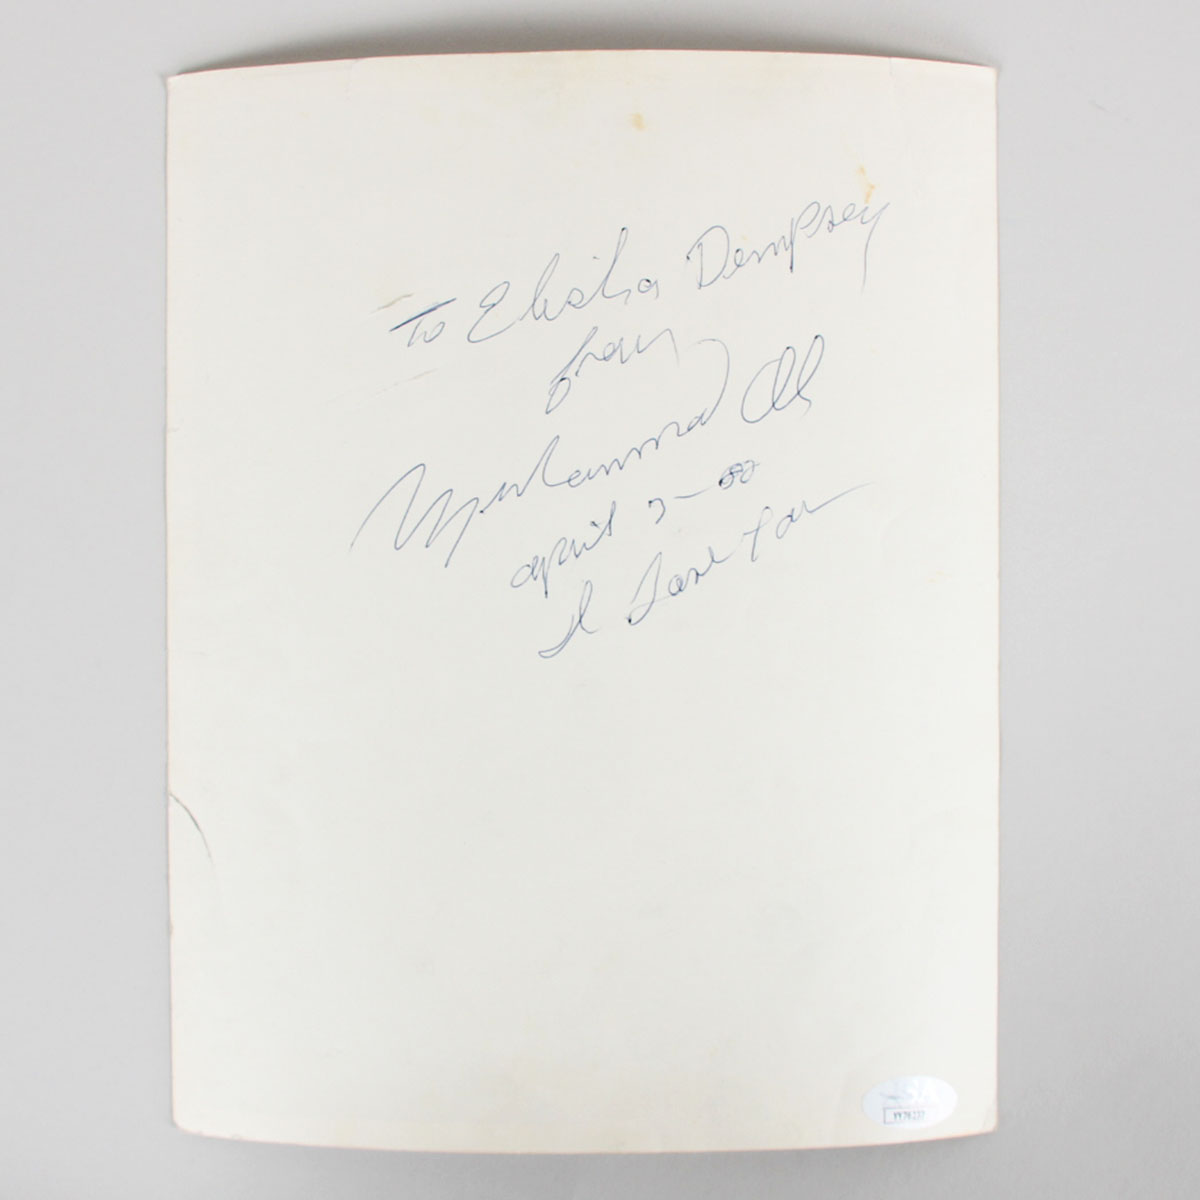 To Elisha Dempsey
from
Muhammad Ali
April 7-82
I Love You
JSA